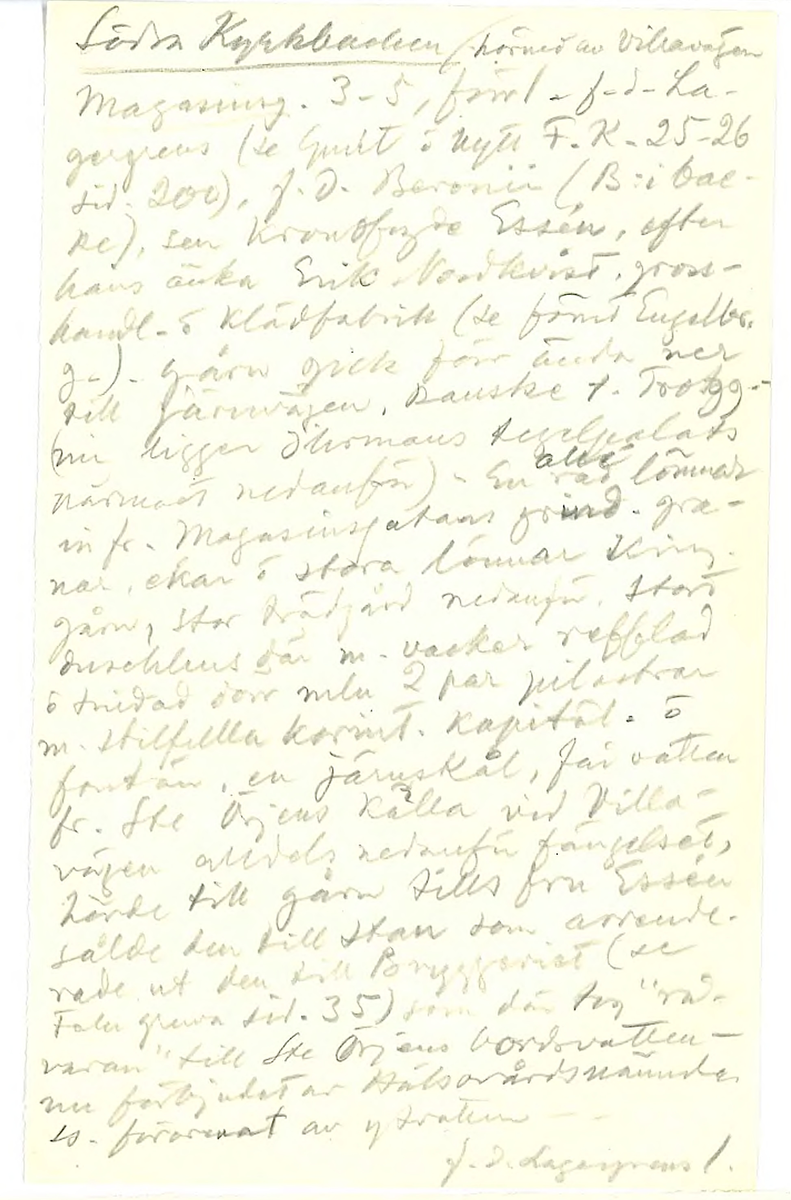 Södra Kyrkbacken, hörnet av Villavägen
Magasinsg. 3-5, förr f-d- La-
gergrens (se Gnist o Nytt F. K. 25-26
sid. 200), f. D. Beronii (B:i bac-
ke), sen Kronofogde Essén, efter
hans änka Erik Nordkvist, gross-
handl- o klädfabrik (se Engelbr.
g-). gårn gick förr ända ner
till järnvägen, kanske t. Trotzg-
(nu ligger Öhrmans tegelpalats
närmast nedanför) - En rad allé lönnar
in fr. Magasinsgatans grind. gra-
nar, ekar o stora lönnar kring
gårn, stor trädgård nedanför. Stort
duschhus där m. vacker refflad
o snidad dörr mln 2 par pilastrar
m. stilfulla korint. kapitäl. o
fontän, en järnskål, fri vatten
fr. Ste Örjens Källa vid Villa-
vägen alldels nedanför fängelset,
hörde till gårn tills fru Essén
sålde den till stan som arrende-
rade ut den till Bryggeriet (se
Falu gruva sid. 35) som där tog "rå-
varan" till Ste Örjens bordsvatten-
nu förbjudet av Hälsovårdsnämnden
ss. förorenat av ytvatten - -
f. d. Lagergrens 1.